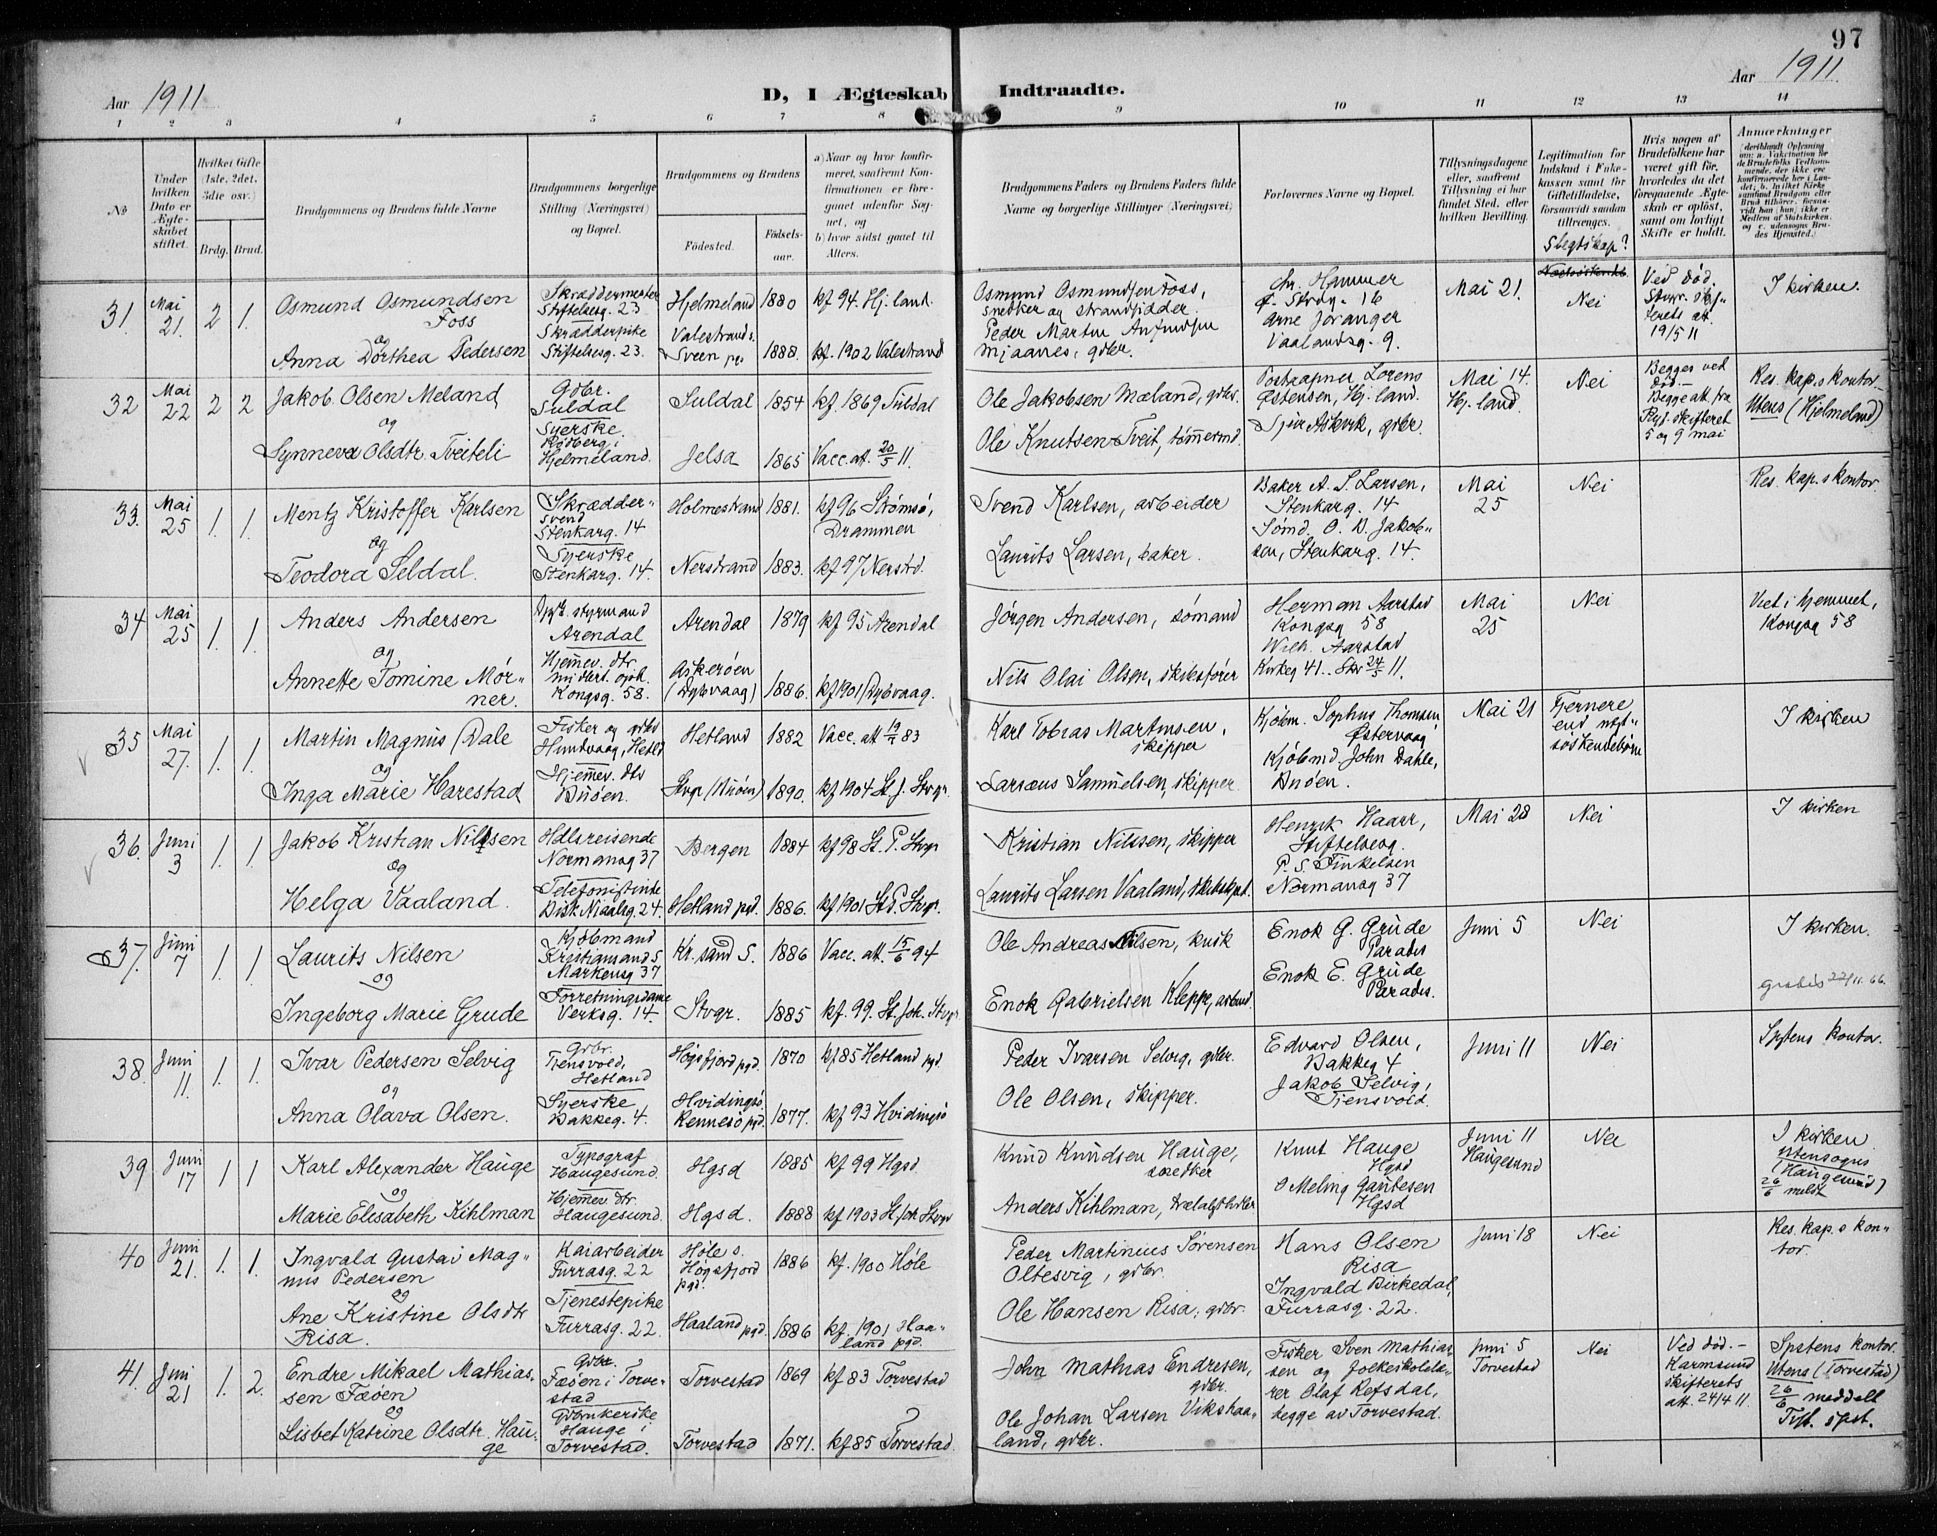 97
Aar 1911
D, I Ægteskab Indtraadte.
Aar 1911.
1 2 3 4 5 6 7 8 9 10 11 12 13 14
№
Under hvilken Dato er Ægteskabet stiftet.
Hvilket Gifte (1ste, 2det, 3die osv.)
Brdg. Brud.
Brudgommens og Brudens fulde Navne
Brudgommens borgerlige Stilling (Næringsvei) og Bopæl.
Brudgommens og Brudens
Fødested.
Fødselsaar.
a) Naar og hvor konfirmeret, saafremt Konfirmationen er foregaaet udenfor Sognet, og
b) hvor sidst gaaet til Alters.
Brudgommens Faders og Brudens Faders fulde Navne og borgerlige Stillinger (Næringsvei)
Forlovernes Navne og Bopæl.
Tillysningsdagene eller, saafremt Tillysning ei har fundet Sted, efter hvilken Bevilling.
Legitimation for Indskud i Enkekassen samt for Giftetilladelse, forsaavidt saadan tiltrænges.
Slegtskap?
Hvis nogen af Brudefolkene har været gift før, hvorledes da det foregaaende Ægteskab er opløst, samt om lovligt Skifte er holdt.
Anmærkninger
31. Mai 21. 2 1.
Osmund Osmundsen Foss
og
Anna Dorthea Pedersen
Skræddermester Stiftelsesg. 23
Skrædderpike Stiftelsesg. 23.
Hjelmeland 1880 kf 94 Hj. land.
Valestrand s. Sveen pr 1888. kf. 1902 Valestrand
Osmund Osmundsen Foss, snedker og strandsidder.
Peder Martin Anfindsen Mjaanes, gdbr.
Chr. Hammer
Ø. Strdg. 16
Arne Joranger
Vaalandsg. 9.
Mai 21.
Nei
Ved død,
19/5 11
I kirken.
32 Mai 22 2 2
Jakob Olsen Meland
og
Synneva Olsdtr. Tveiteli
Gdbr. Suldal
Syerske
Hjelmeland.
Suldal 1854 kf. 1869 Suldal
Jelsa 1865 Vacc. att. 20/5 11.
Ole Jakobsen Mæland, gdbr.
Ole Knutsen Tveit, tømmermd
Postaapner Lorens Østensen, Hj. land.
Sjur Askvik, gdbr.
Mai 14. Hj. land.
Nei
Begges ved død.—
Begge att. fra skifteret 5 og 9 mai
Res. kap.s kontor.—
Utens (Hjelmeland)
33. Mai 25 1. 1.
Mentz Kristoffer Karlsen
og
Teodora Seldal.
Skrædder-svend Stenkarg. 14
Syerske Stenkarg. 14.
Holmestrand 1881. kf 96 Strømsø, Drammen
Nerstrand 1883. kf 97 Nerstrd.
Svend Karlsen, arbeider
Laurits Larsen, baker.
Baker A. S. Larsen, Stenkarg. 14
Sømd. O. B. Jakobsen, Stenkarg. 14.
Mai 25
Nei
Res. kap.s kontor.
34 Mai 25 1. 1.
Anders Andersen
og
Annette Tomine Mørner.
styrmand Arendal
Hjemev. dtr. midlert. oph. Kongsg. 58.
Arendal 1879 kf 95 Arendal
Askerøen (Dybvaag) 1886. kf 1901 Dybvaag.
Jørgen Andersen, sømand
Nils Olai Olsen, skibsfører
Herman Aarstad Kongsg 58
Wilh. Aarstad
Kirkeg 41.
Mai 25
Nei
Viet i hjemmet, Kongsg 58
35 Mai 27. 1. 1.
Martin Magnus Dale
og
Inga Marie Harestad
Fisker og gdbr
Huntvaag, Hetld
Hjemev. dtr Buøen.
Hetland 1882 Vacc. att 83
Stvgr (Buøen) 1890. kf 1904 St J. Stvgr.
Karl Tobias Martinsen, skipper
Larsæus Samuelsen, skipper.
Kjøbm. Sophus Thomsen Østervaag
Kjøbmd John Dahle, Buøen.
Mai 21
Fjernere end næstsøskendebørn
I kirken
36. Juni 3 1. 1.
Jakob Kristian Nilssen
og
Helga Vaaland.
Hdlsreisende Normansg 37
Telefonistinde Bisk. Njaalsg. 24.
Bergen 1884 kf 98 St. P. Stvgr
Hetland pgd. 1886. kf 1901 St P. Stvgr.
Kristian Nilssen, skipper
Laurits Larsen Vaaland, skibskpt.
Henrik Haarr, Stiftelsesg.
P. S. Finkelsen
Normansg 37
Mai 28
Nei
I kirken
37. Juni 7 1. 1
Laurits Nilsen
og
Ingeborg Marie Grude
Kjøbmand Kristiansand S Markensg 37
Forretningsdame Verksg. 14.
Kr. sand S. 1886 Vacc. att. 15/6 94
Stvgr. 1885 kf. 99. St. Joh. Stvgr
Ole Andreas Nilsen, kusk
Enok Gabrielsen Kleppe, arbmd.
Enok G. Grude Paradis
Enok E. Grude Paradis.
Juni 5
Nei
I kirken.
66.
38. Juni 11. 1. 1.
Ivar Pedersen Selvig
og
Anna Olava Olsen.
Gdbr. Tjensvold, Hetland
Syerske Bakkeg. 4.
Høgsfjord pgd. 1870 kf 85 Hetland pgd.
Hvidingsø Rennesø pgd. 1877. kf 93 Hvidingsø
Peder Ivarsen Selvig, gdbr.
Ole Olsen, skipper.
Edvard Olsen, Bakkeg 4
Jakob Selvig, Tjensvold.
Juni 11
Nei
Spstens kontor.
39 Juni 17 1 1
Karl Alexander Hauge
og
Marie Elisabeth Kihlman
Typograf Haugesund.
Hjemev. dtr. Haugesund.
Hgsd 1885 kf 99 Hgsd
Hgsd. 1888 kf 1903 St Joh Stvgr
Knud Knudsen Hauge, snedker
Anders Kihlman,
Knut Hauge Hgsd
O Meling Gautesen Hgsd
Juni 11 Haugesund
Nei
I kirken utensogns (Haugesund) 26/6 meldt
40 Juni 21. 1. 1.
Ingvald Gustav Magnus Pedersen
og
Ane Kristine Olsdtr Risa.
Kaiarbeider Furrasg. 22
Tjenestepike Furrasg. 22.
Høle s. Høgsfjord pgd. 1886 kf. 1900 Høle
Haaland pgd. 1886 kf. 1901 Haaland pgd.
Peder Martinius Sørensen Oltesvig, gdbr.
Ole Hansen Risa, gdbr.
Hans Olsen Risa
Ingvald Birkedal, Furrasg. 22.
Juni 18
Nei
Res. kap.s kontor.
41. Juni 21 1. 2.
Endre Mikael Mathiassen Fæøen
og
Lisbet Katrine Olsdtr. Hauge
Gdbr. Fæøen i Torvestad
Gdbrukerske Hauge i Torvestad.
Torvestad 1869 kf 83 Torvestad
Torvestad 1871. kf 85 Torvestad.
John Mathias Endresen, gdbr.
Ole Johan Larsen Vikshaaland, gdbr.
Fisker Sven Mathiassen og folkeskolelærer Olaf Refsdal, begge av Torvestad.
Juni 5 Torvestad
Nei
Ved død.— Karmsund skifterets att. 24/4 11
Spstens kontor. Utens (Torvestad) 26/6 meddelt Tvst. spst.